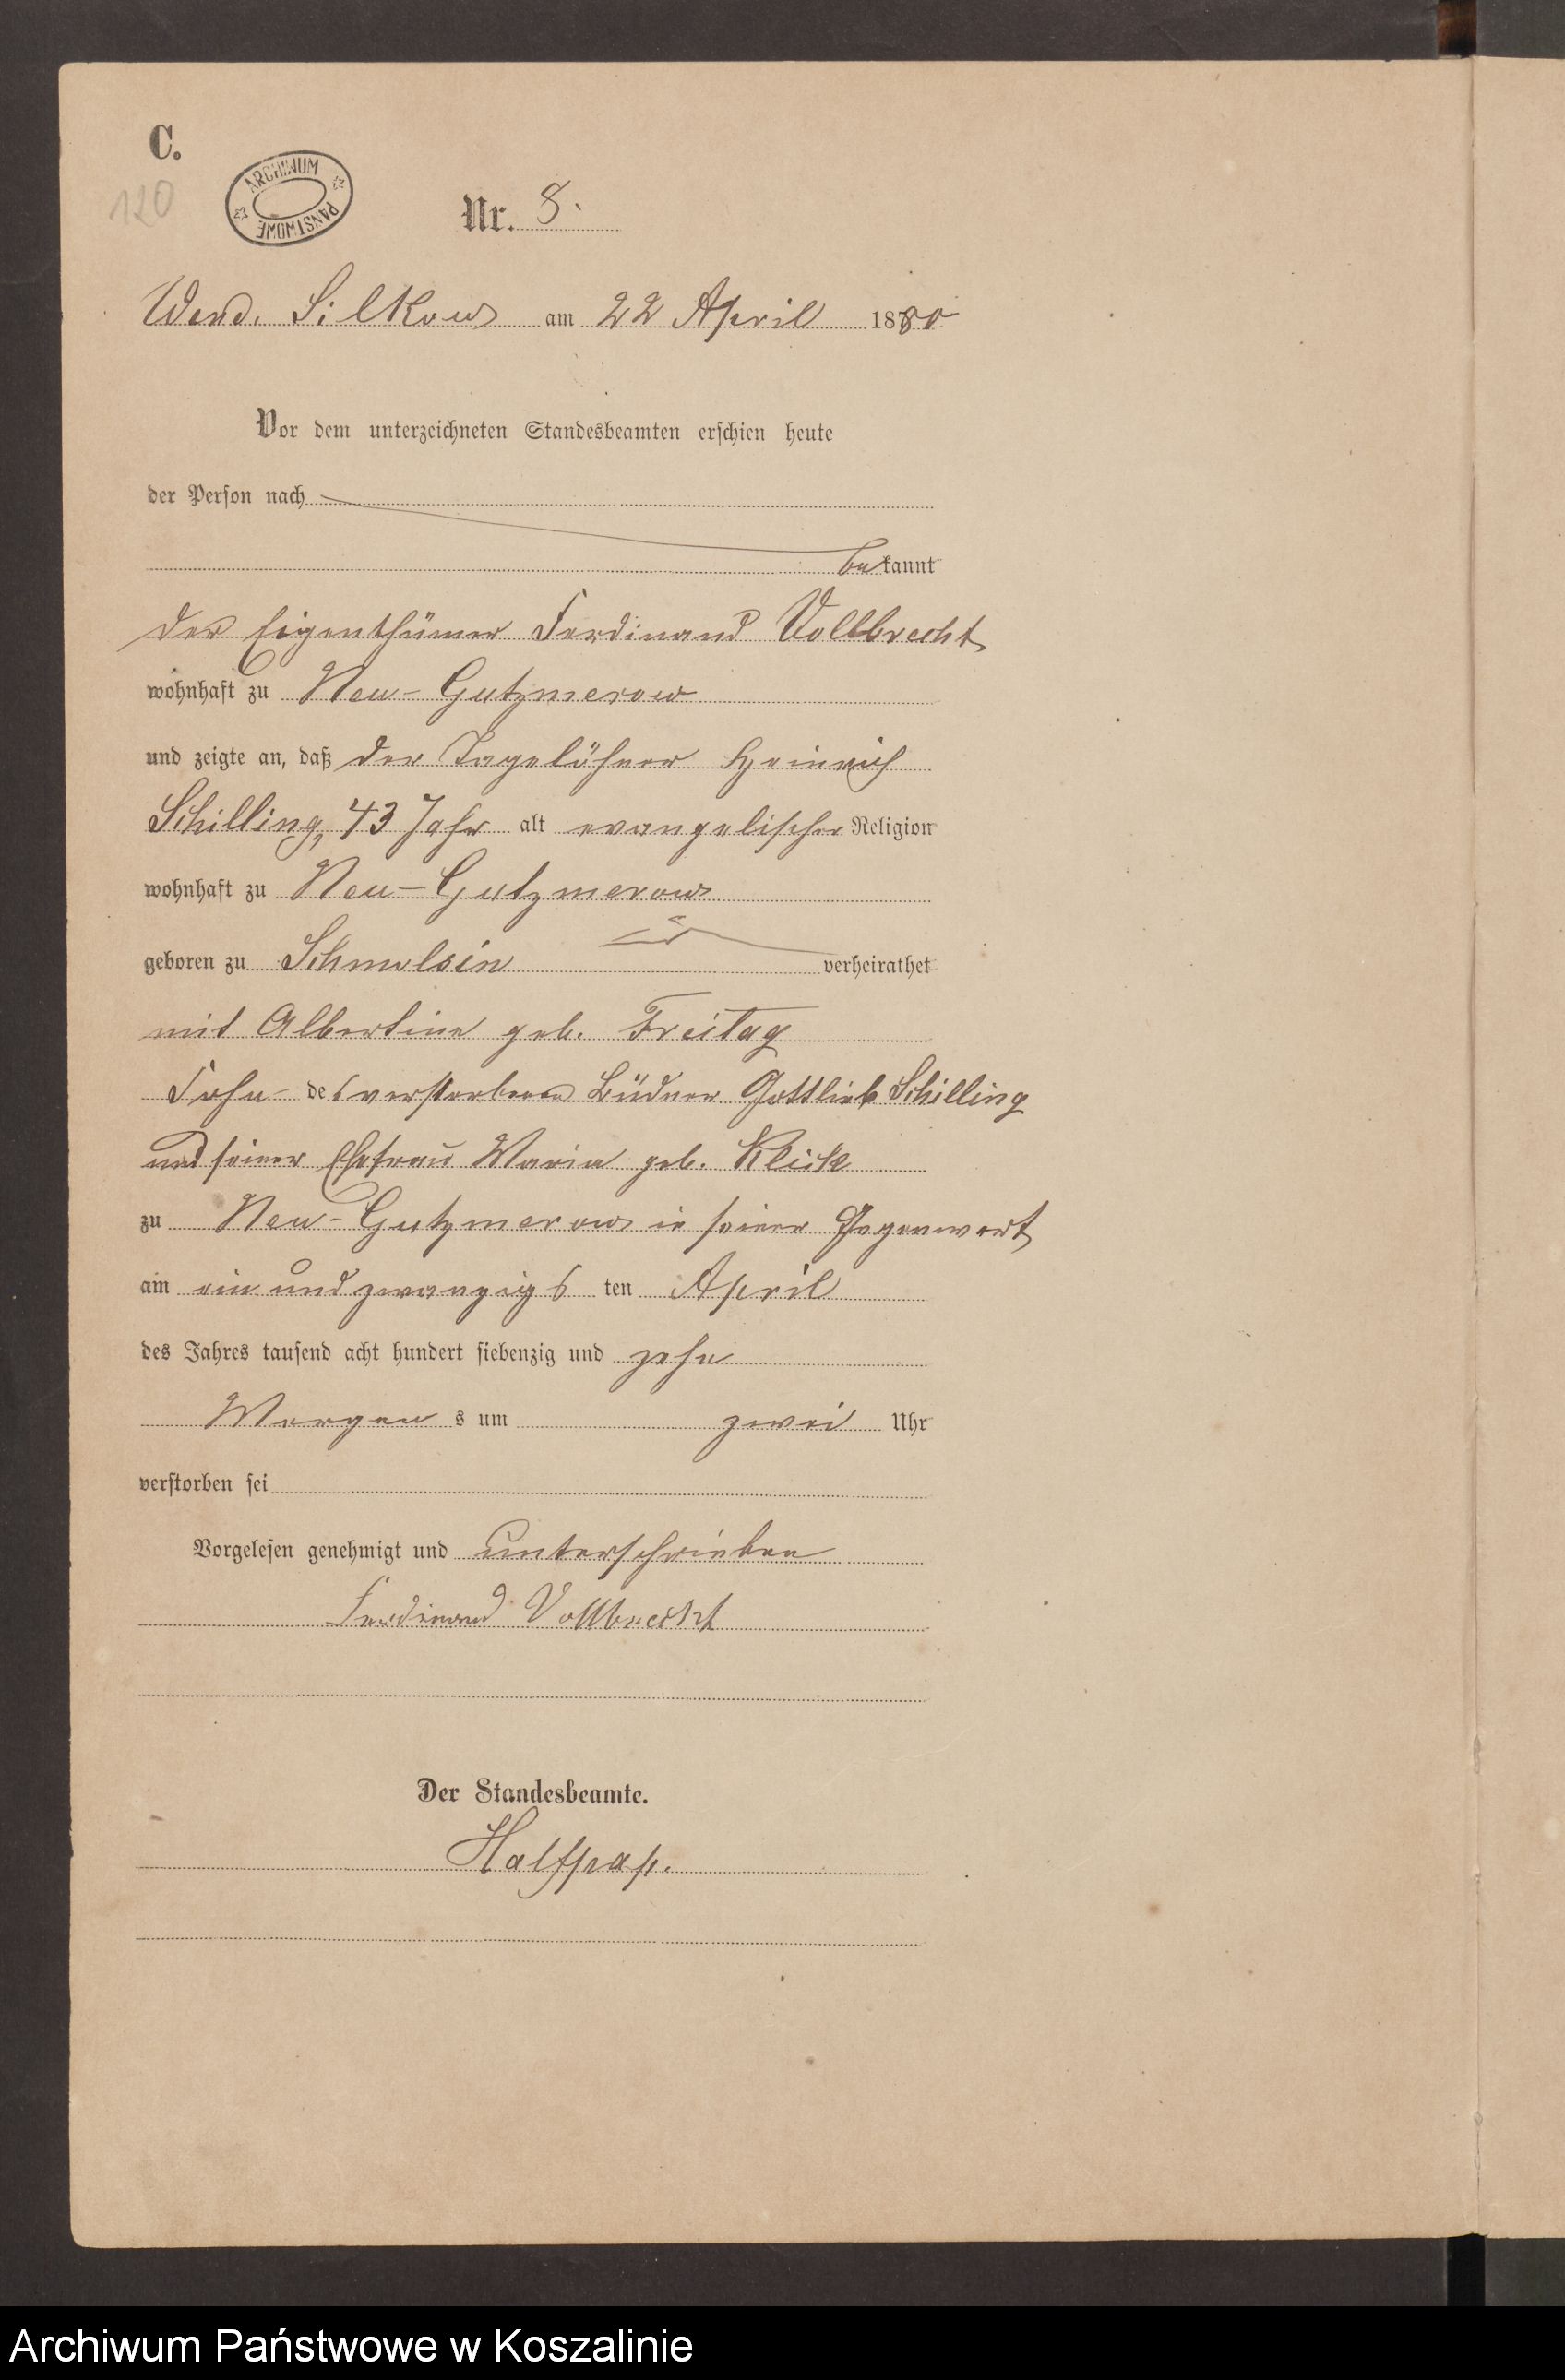 C.
120
ARCHIWUM PAŃSTWOWE
Nr. 8.
Wend. Silkow am 22 April 1880
Vor dem unterzeichneten Standesbeamten erschien heute
der Person nach
bekannt
der Eigenthümer Ferdinand Vollbrecht
wohnhaft zu Neu-Gutzmerow
und zeigte an, daß der Tagelöhner Heinrich
Schilling, 43 Jahr alt evangelischer Religion
wohnhaft zu Neu-Gutzmerow
geboren zu Schmolsin verheirathet
mit Albertine geb. Freitag
Sohn des verstorbenen Büdner Gottlieb Schilling
und seiner Ehefrau Maria geb. Klick
zu Neu-Gutzmerow in seiner Gegenwart
am ein und zwanzigs ten April
des Jahres tausend acht hundert siebenzig und zehn
Morgen s um zwei Uhr
verstorben sei
Vorgelesen genehmigt und unterschrieben
Ferdinand Vollbrecht
Der Standesbeamte.
Halfpap.
Archiwum Państwowe w Koszalinie